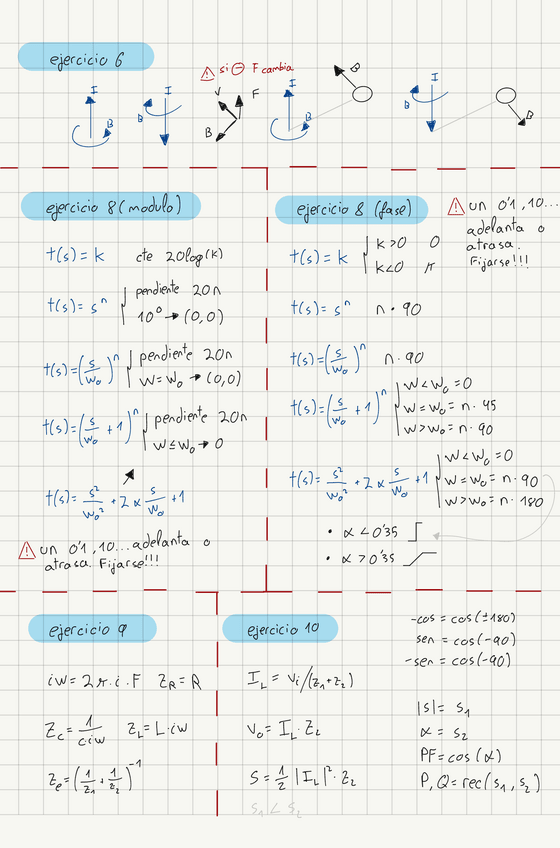 ejercicio 6
⚠ si ⊖ F cambia
I B
B I
V F B
I B
B
I B
B
ejercicio 8 (modulo)
t(s) = k cte 20log(k)
t(s) = sⁿ { pendiente 20n
10⁰ → (0,0)
t(s) = (s/w₀)ⁿ { pendiente 20n
w = w₀ → (0,0)
t(s) = (s/w₀ + 1)ⁿ { pendiente 20n
w ≤ w₀ → 0
t(s) = s²/w₀² + 2 α s/w₀ + 1
⚠ un 0'1, 10... adelanta o
atrasa. Fijarse!!!
ejercicio 8 (fase)
⚠ un 0'1, 10...
adelanta o
atrasa.
Fijarse!!!
t(s) = k { k>0 0
k<0 π
t(s) = sⁿ n · 90
t(s) = (s/w₀)ⁿ n · 90
t(s) = (s/w₀ + 1)ⁿ { w < w₀ = 0
w = w₀ = n · 45
w > w₀ = n · 90
t(s) = s²/w₀² + 2 α s/w₀ + 1 { w < w₀ = 0
w = w₀ = n · 90
w > w₀ = n · 180
• α < 0'35
• α > 0'35
ejercicio 9
iw = 2π · i · F Z_R = R
Z_c = 1/(c·iw) Z_L = L·iw
Z_e = (1/Z₁ + 1/Z₂)⁻¹
ejercicio 10
I_L = Vi/(Z₁+Z₂)
V₀ = I_L · Z_L
S = 1/2 |I_L|² · Z₂
S₁ ∠ S₂
-cos = cos(±180)
sen = cos(-90)
-sen = cos(-90)
|S| = S₁
α = S₂
PF = cos(α)
P, Q = rec(S₁, S₂)